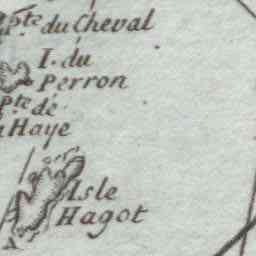 Pte. du Cheval
I. du
Perron
Pte de
Haye
Isle
Hagot